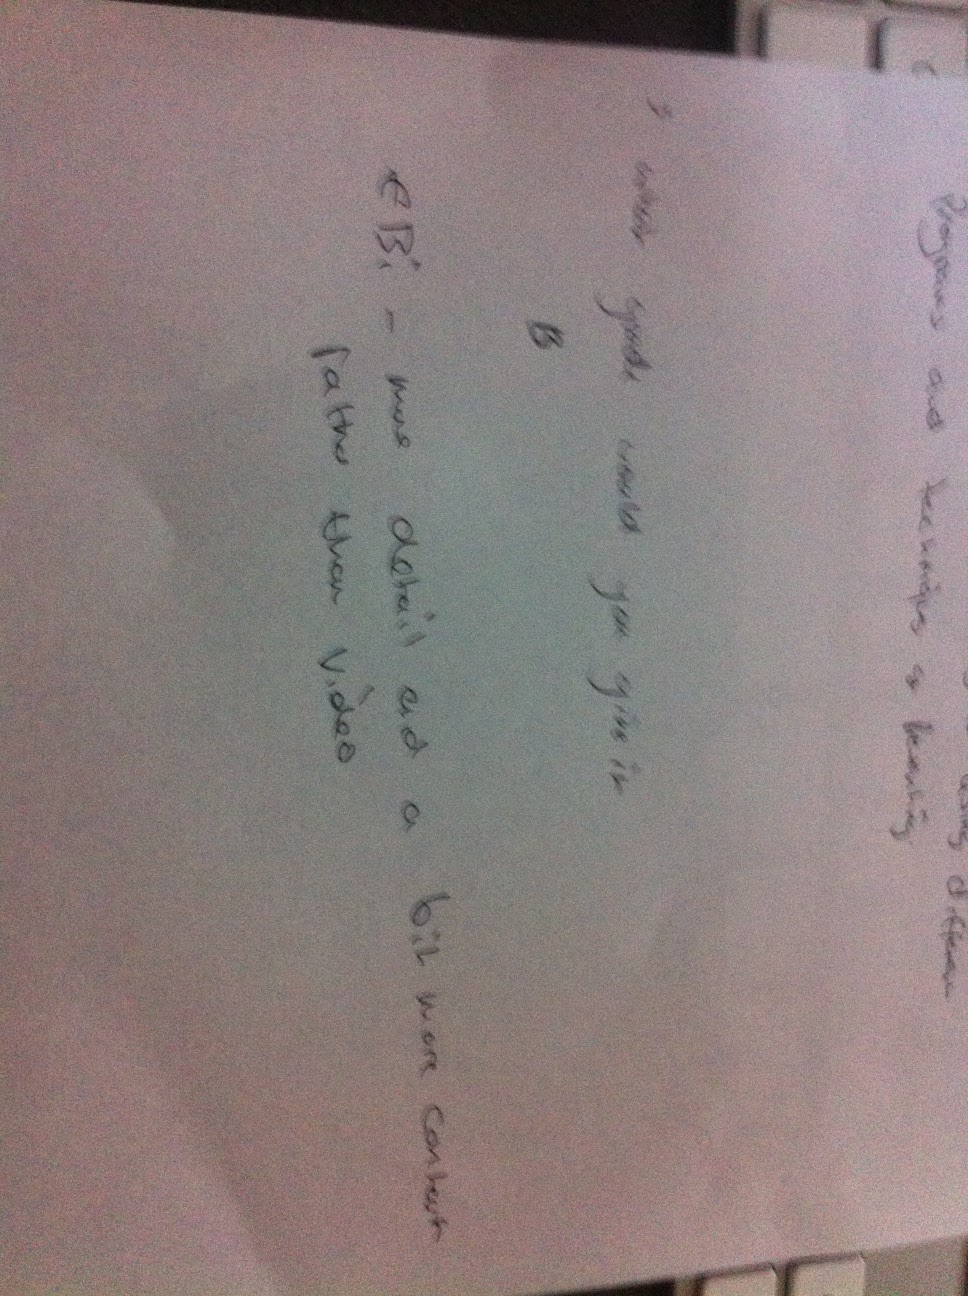 different
Programs and techniques of learning.
3 what grade would you give it
B
EBI - more detail and a bit more content
rather than video